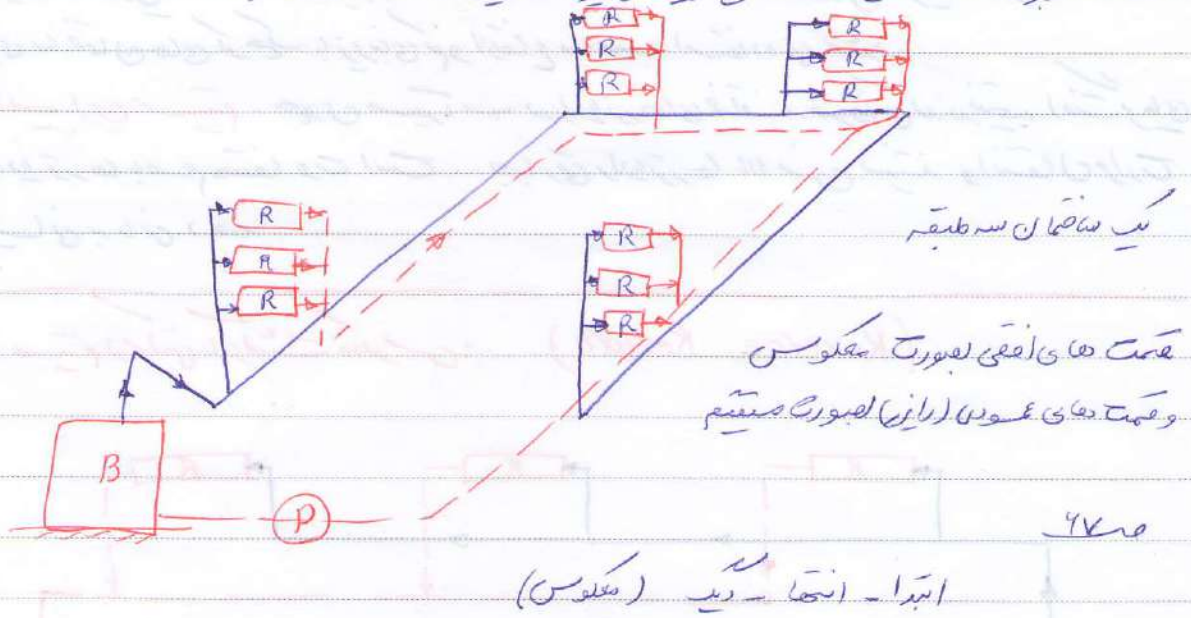 R
R
R
R
R
R
R
R
R
R
R
R
یک ساختمان سه طبقه
قسمت های افقی بصورت معکوس
و قسمت های عمودی (رایزر) بصورت مستقیم
B
P
ص ۶۷
ابتدا - انتها - دیگ (معکوس)